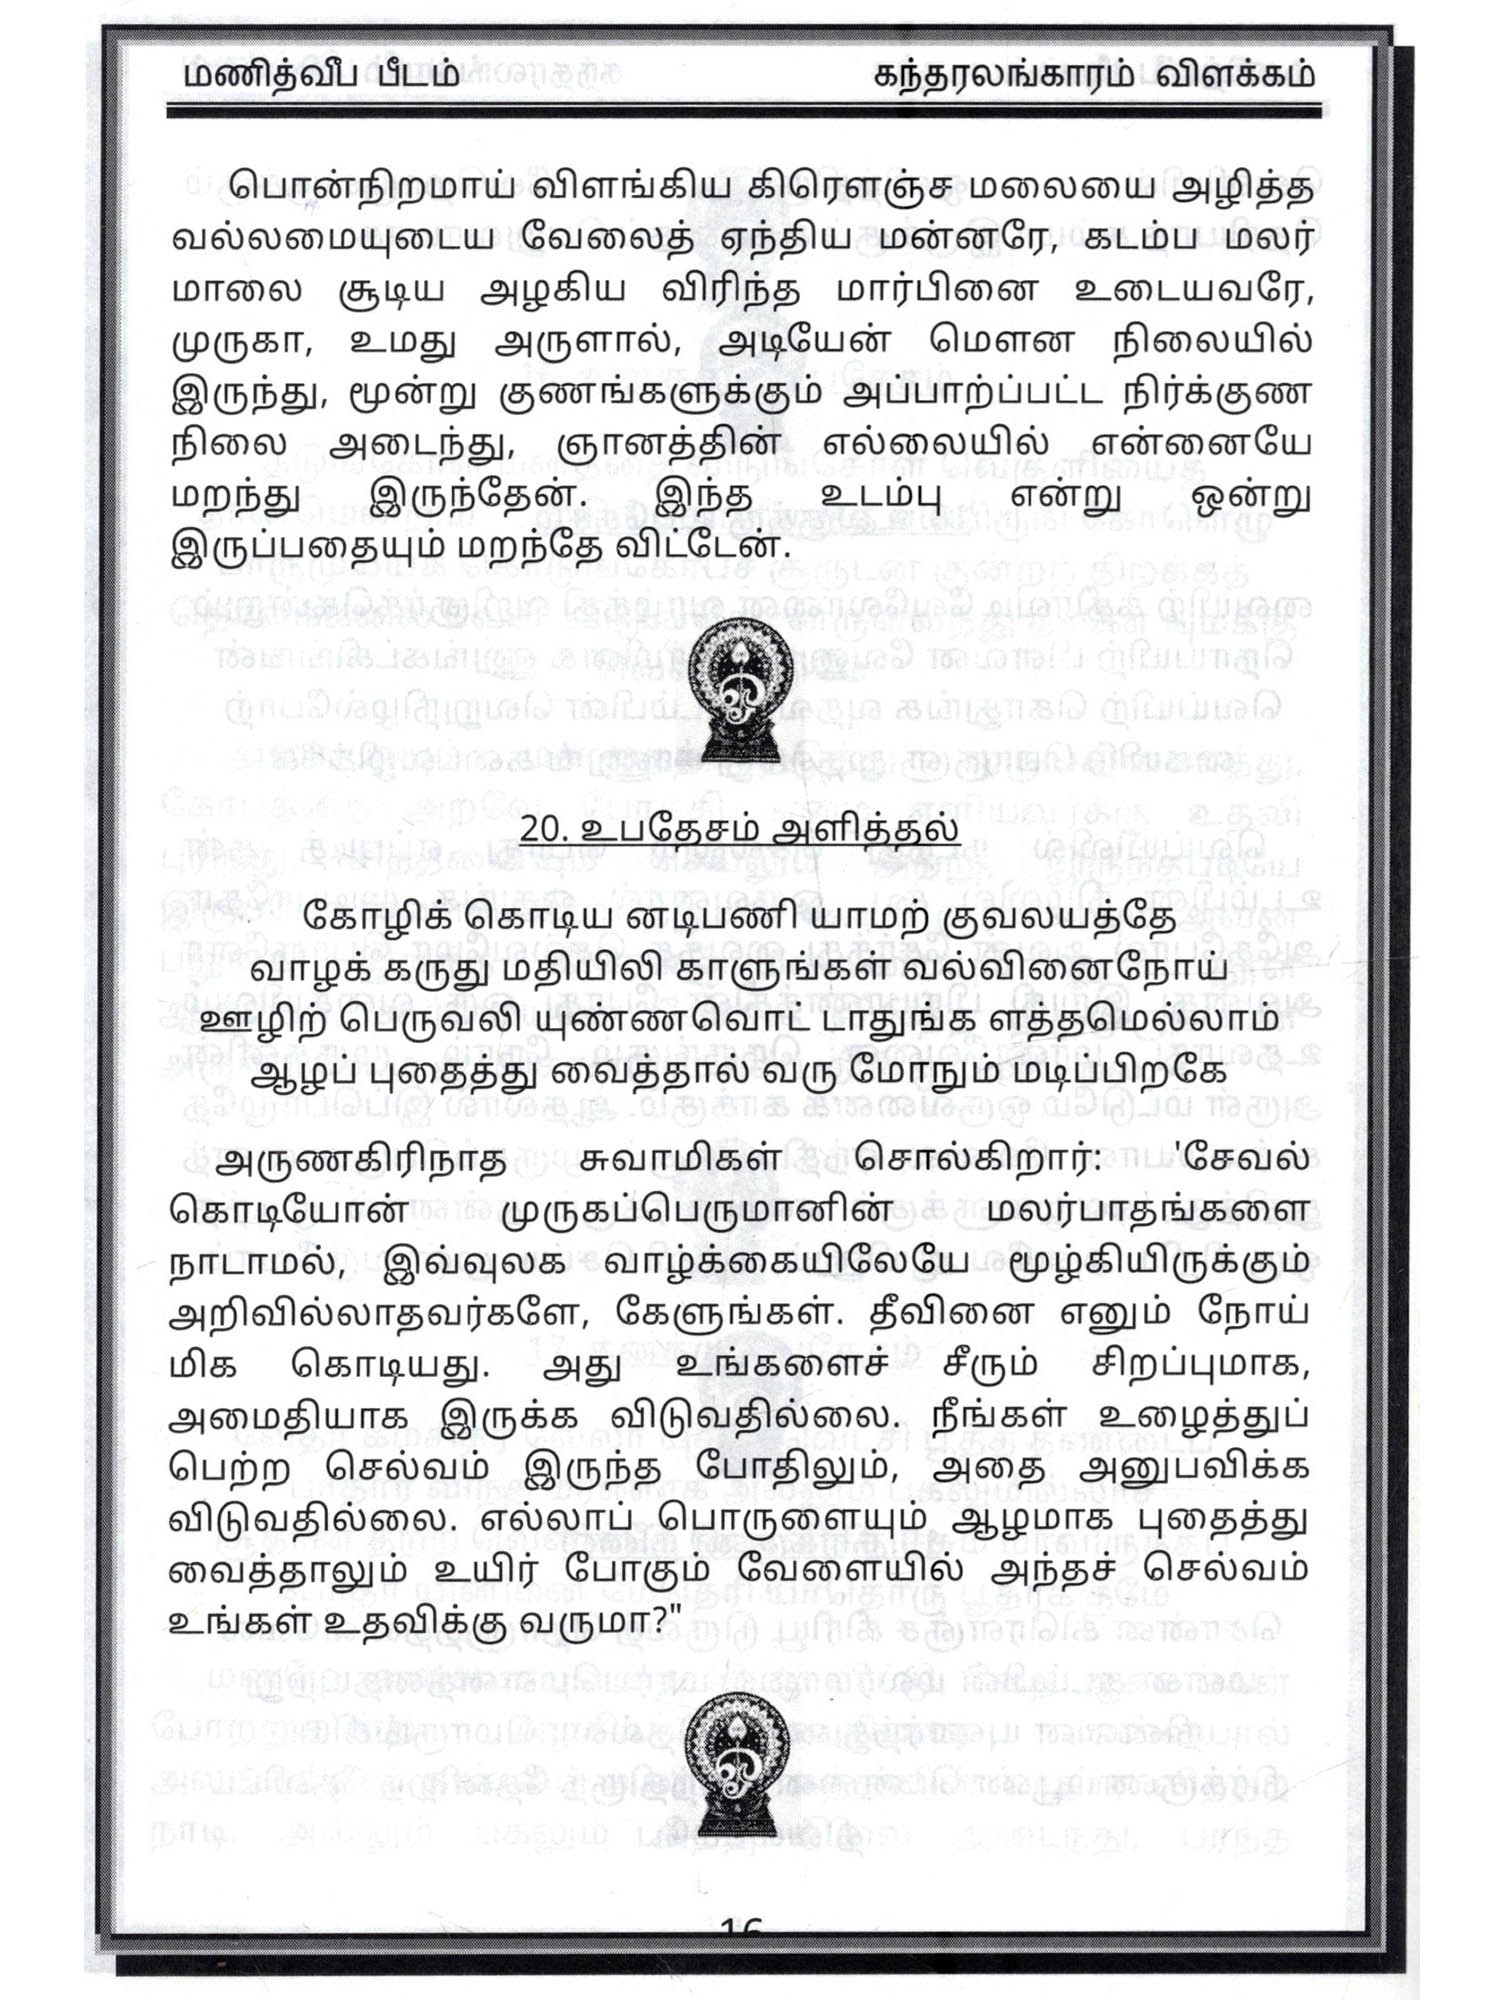 மணித்வீப பீடம் கந்தரலங்காரம் விளக்கம்
பொன்நிறமாய் விளங்கிய கிரௌஞ்ச மலையை அழித்த
வல்லமையுடைய வேலைத் ஏந்திய மன்னரே, கடம்ப மலர்
மாலை சூடிய அழகிய விரிந்த மார்பினை உடையவரே,
முருகா, உமது அருளால், அடியேன் மௌன நிலையில்
இருந்து, மூன்று குணங்களுக்கும் அப்பாற்ப்பட்ட நிர்க்குண
நிலை அடைந்து, ஞானத்தின் எல்லையில் என்னையே
மறந்து இருந்தேன். இந்த உடம்பு என்று ஒன்று
இருப்பதையும் மறந்தே விட்டேன்.
20. உபதேசம் அளித்தல்
கோழிக் கொடிய னடிபணி யாமற் குவலயத்தே
வாழக் கருது மதியிலி காளுங்கள் வல்வினைநோய்
ஊழிற் பெருவலி யுண்ணவொட் டாதுங்க ளத்தமெல்லாம்
ஆழப் புதைத்து வைத்தால் வரு மோநும் மடிப்பிறகே
அருணகிரிநாத சுவாமிகள் சொல்கிறார்: 'சேவல்
கொடியோன் முருகப்பெருமானின் மலர்பாதங்களை
நாடாமல், இவ்வுலக வாழ்க்கையிலேயே மூழ்கியிருக்கும்
அறிவில்லாதவர்களே, கேளுங்கள். தீவினை எனும் நோய்
மிக கொடியது. அது உங்களைச் சீரும் சிறப்புமாக,
அமைதியாக இருக்க விடுவதில்லை. நீங்கள் உழைத்துப்
பெற்ற செல்வம் இருந்த போதிலும், அதை அனுபவிக்க
விடுவதில்லை. எல்லாப் பொருளையும் ஆழமாக புதைத்து
வைத்தாலும் உயிர் போகும் வேளையில் அந்தச் செல்வம்
உங்கள் உதவிக்கு வருமா?"
16